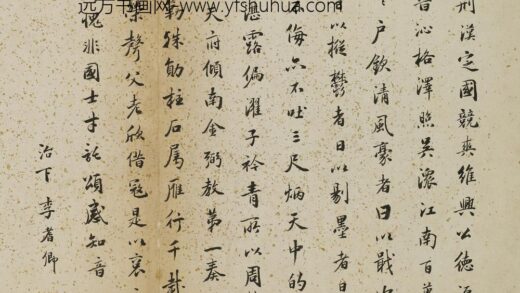 远方书画网: www.yfshuhua.com
荆漢定國競爽維興以德
沁格澤照吳江南百萬
户欽清風豪者日以戢
日以掇欝者日以剔墨者日
侮亦不吐三尺炳天中的
湛露偏濯子衿青所以周
天府傾南金弼教第一奏
勒殊勛柱石屬雁行千載
聲父老欣借寇是以裏
愧非國士才託頌感知音
治下李者卿